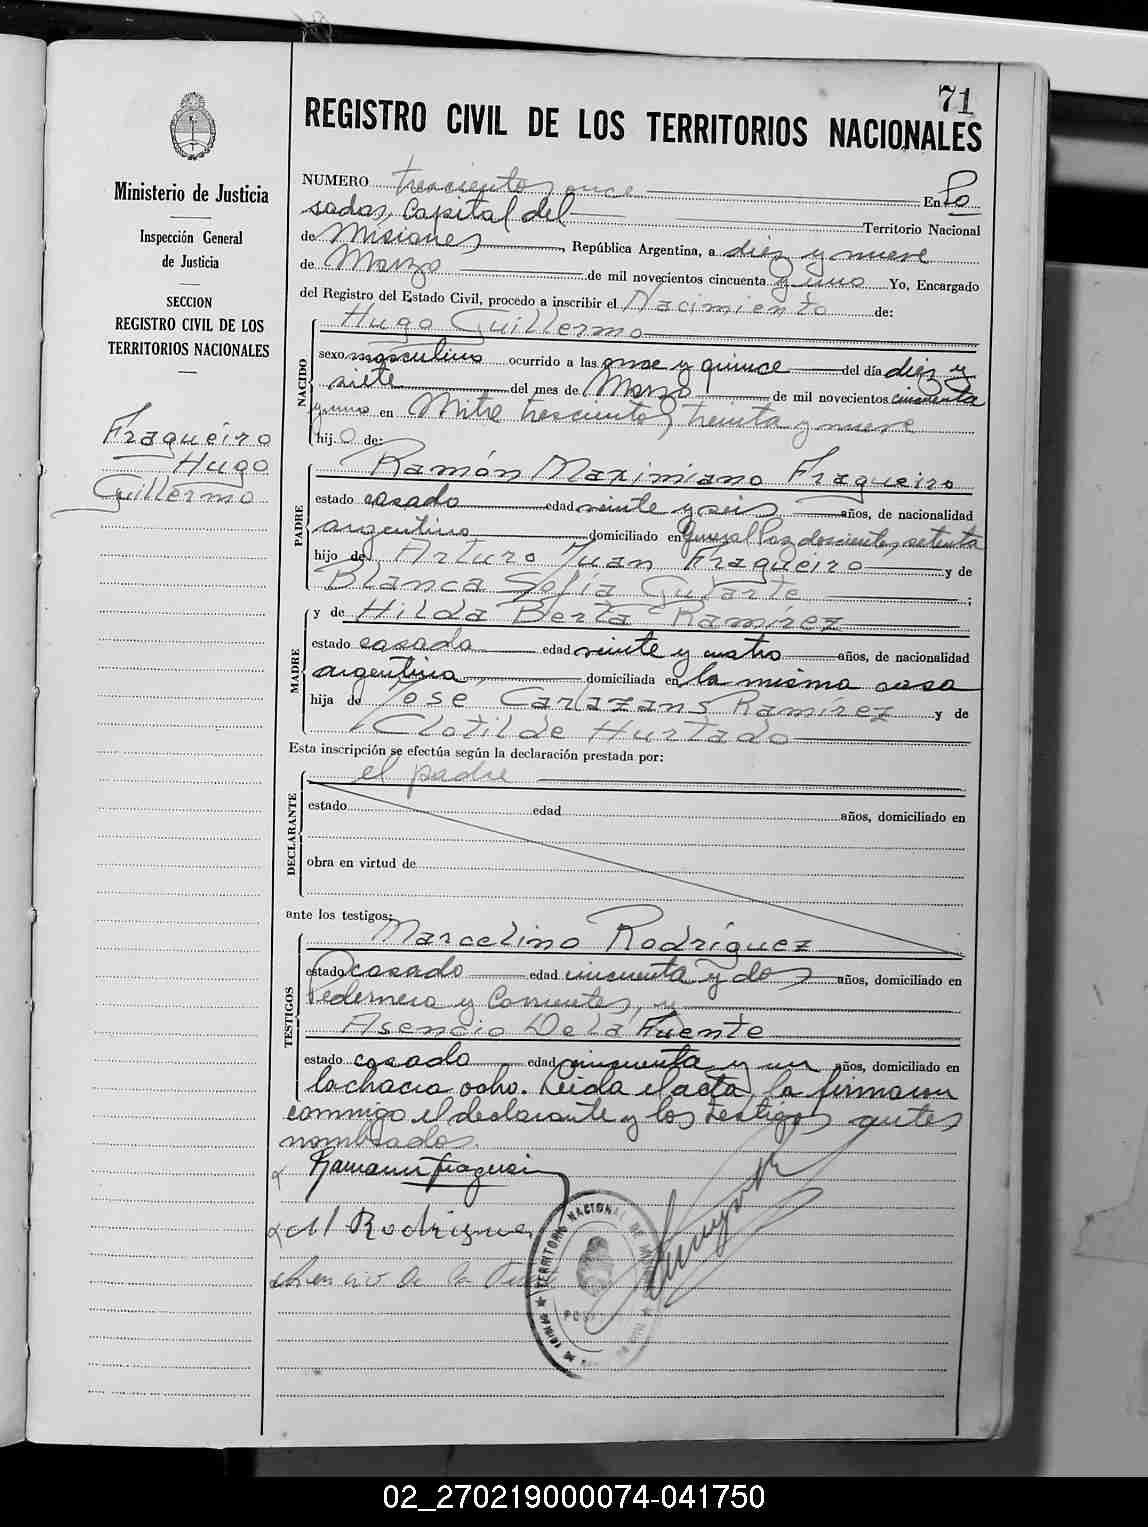 71
REGISTRO CIVIL DE LOS TERRITORIOS NACIONALES
Ministerio de Justicia
Inspección General
de Justicia
SECCION
REGISTRO CIVIL DE LOS
TERRITORIOS NACIONALES
Fragueiro
Hugo
Guillermo
NUMERO trescientos once En Po
sadas, Capital del Territorio Nacional
de Misiones, República Argentina, a diez y nueve
de Marzo de mil novecientos cincuenta y uno Yo, Encargado
del Registro del Estado Civil, procedo a inscribir el Nacimiento de:
Hugo Guillermo
NACIDO
sexo masculino ocurrido a las once y quince del día diez y
siete del mes de Marzo de mil novecientos cincuenta
y uno en Mitre trescientos treinta y nueve
hijo de:
Ramón Maximiano Fragueiro
PADRE
estado casado edad veinte y seis años, de nacionalidad
argentino domiciliado en General Paz doscientos setenta
hijo de Arturo Juan Fragueiro y de
Blanca Sofía ;
y de Hilda Berta Ramírez
MADRE
estado casada edad veinte y cuatro años, de nacionalidad
argentina, domiciliada en la misma casa
hija de José Ramírez y de
Clotilde Hurtado
Esta inscripción se efectúa según la declaración prestada por:
el padre
DECLARANTE
estado edad años, domiciliado en
obra en virtud de
ante los testigos:
Marcelino Rodríguez
TESTIGOS
estado casado edad cincuenta y dos años, domiciliado en
Pedernera y Corrientes, y
Asencio De la Fuente
estado casado edad cincuenta y un años, domiciliado en
la chacra ocho. Leida el acta, la firmaron
conmigo el declarante y los testigos antes
nombrados.
M Rodrigue
de la
TERRITORIO NACIONAL DE
02_270219000074-041750